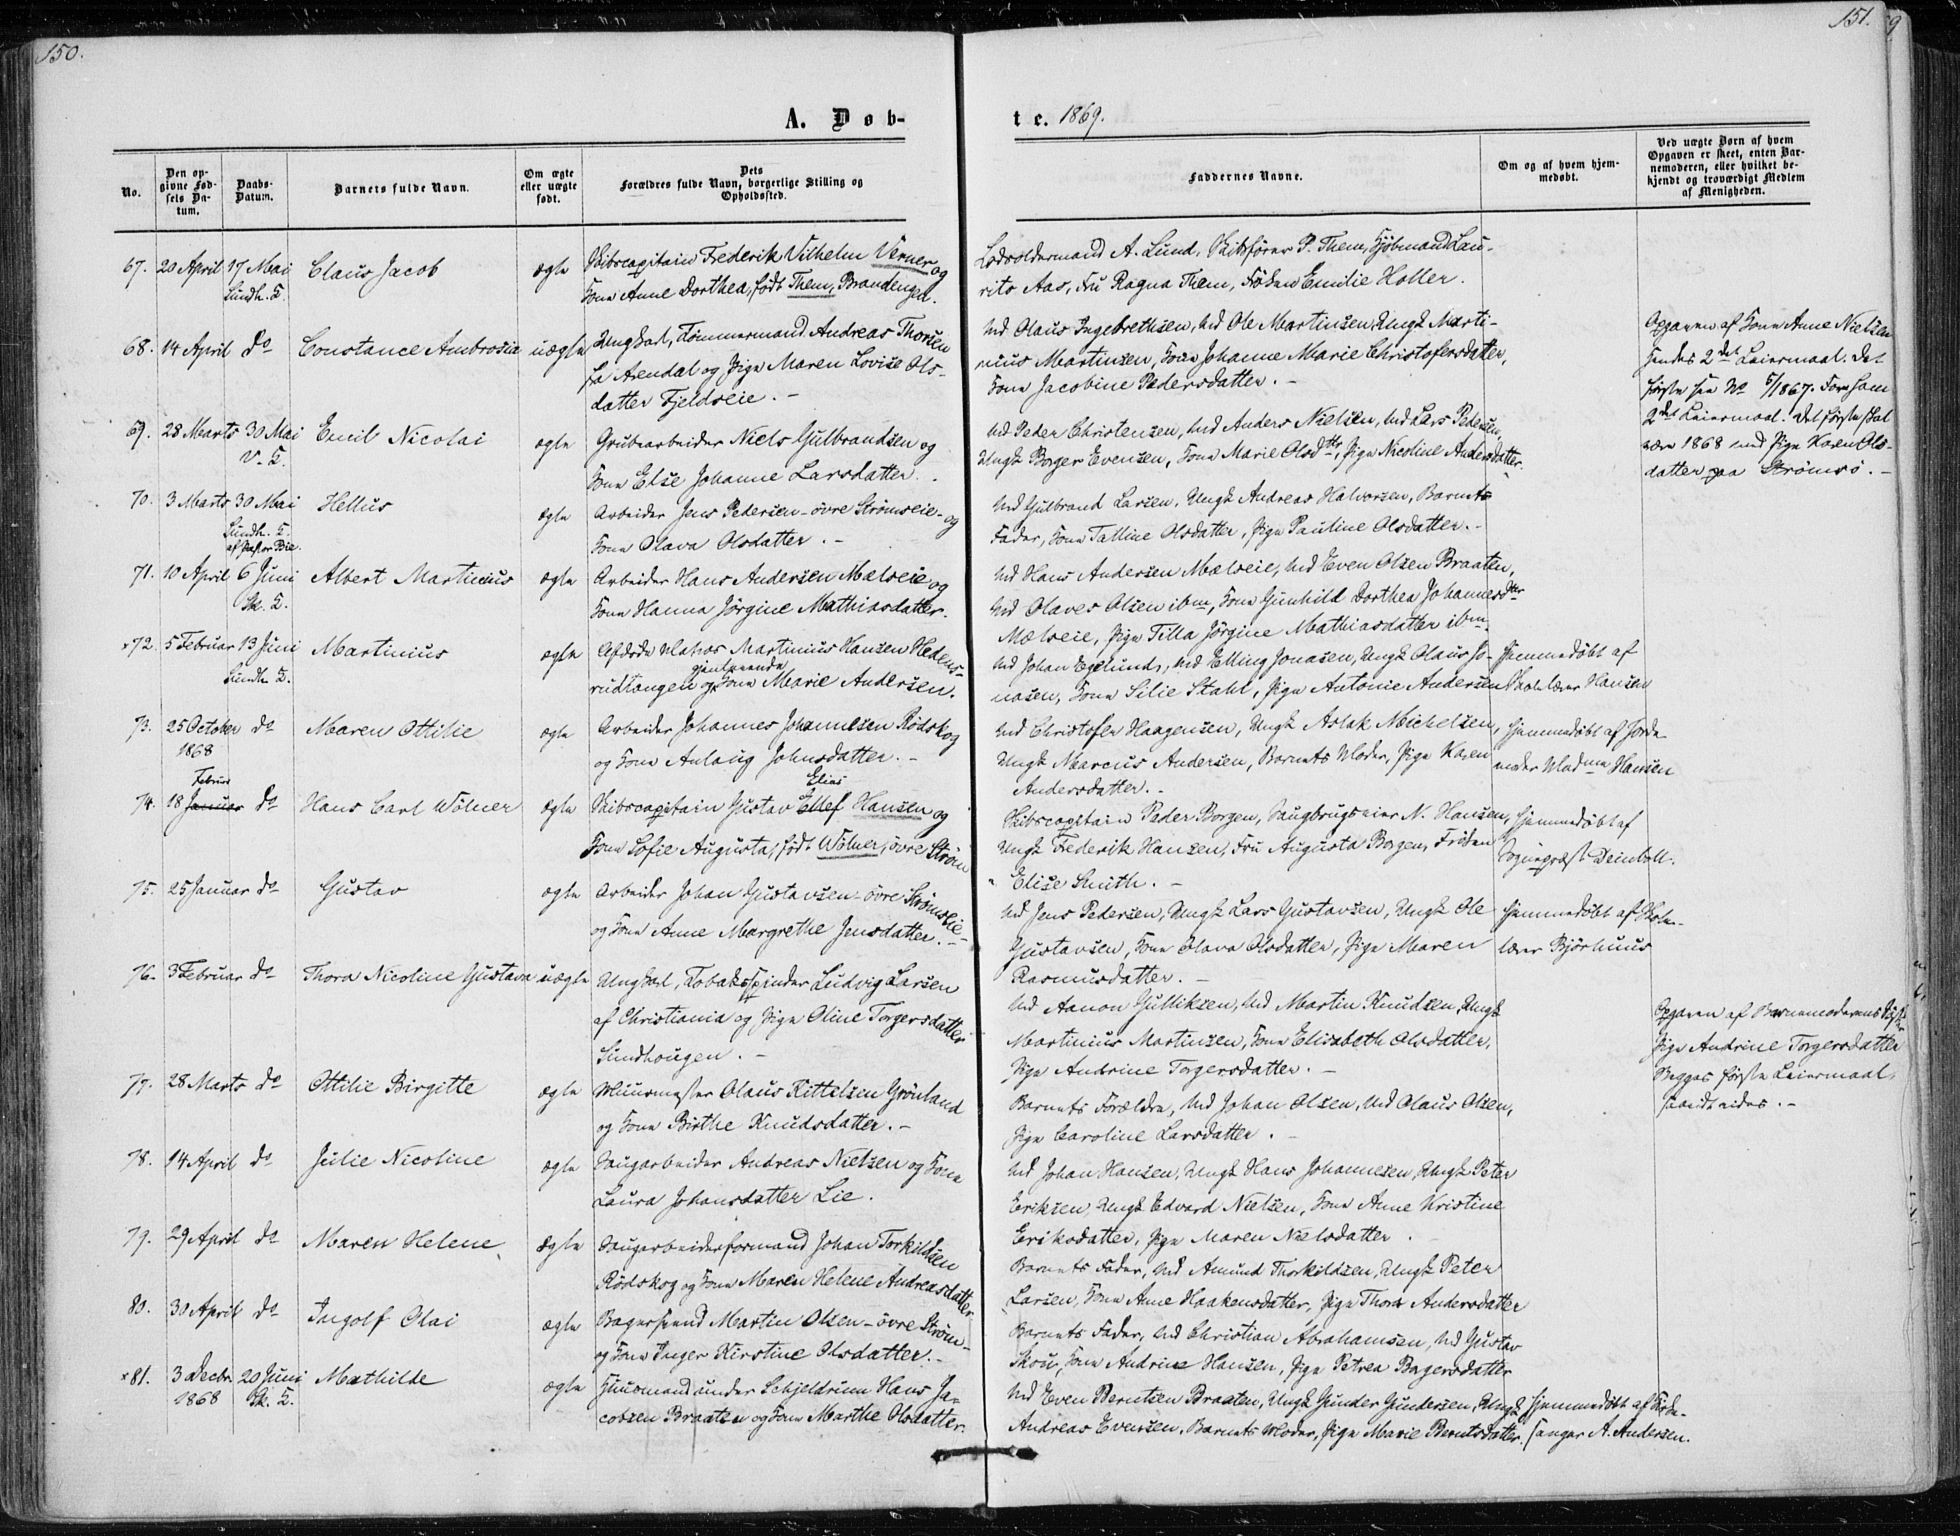 150.
151.
A. Døb-
te. 1869.
No.
Den op-
givne Fød-
sels Da-
tum.
Daabs-
Datum.
Barnets fulde Navn.
Om ægte
eller uægte
født.
Dets
Forældres fulde Navn, borgerlige Stilling og
Opholdssted.
Faddernes Navne.
Om og af hvem hjem-
medøbt.
Ved uægte Børn af hvem
Opgaven er skeet, enten Bar-
nemoderen, eller hvilket be-
kjendt og troværdigt Medlem
af Menigheden.
67. 20 April 17 Mai Claus Jacob ægte Skibscapitain Frederik Vilhelm Verner og
Sundh. K.
Kone Anne Dorthea, født Them, Brandenged.
Lodsoldermand A. Lund, Skibsfører P. Them, Kjøbmand Lau-
rits Aas, Fru Ragna Them, Frøken Emilie Holler.
68. 14 April do Constance Ambrosia uægte Ungkarl, Tømmermand Andreas Thorsen
fra Arendal og Pige Maren Lovise Ols-
datter Fjeldseie. -
Md Olaus Ingebrethsen, Md Ole Martinsen, Ungk Marti-
nius Martinsen, Kone Johanne Marie Christofersdatter,
Kone Jacobine Pedersdatter. -
Opgaven af Kone Anne Nielsen
hendes 2det Leiermaal. Det
første see No 5/1867. For ham
2det Leiermaal. Det første skal
være 1868 med Pige Karen Ols-
datter paa Strømsø. -
69. 28 Marts 30 Mai Emil Nicolai ægte Grubearbeider Niels Gulbrandsen og
V. K.
Kone Else Johanne Larsdatter.
Md Peder Christensen, Md Anders Nielsen, Md Lars Pedersen,
Ungk Borger Evensen, Kone Marie Olsdtr, Pige Nicoline Andersdatter.
70. 3 Marts 30 Mai Hellus ægte Arbeider Jens Pedersen - øvre Strømseie - og
Sundh. K.
af Pastor Bie.
Kone Olava Olsdatter. -
Md Gulbrand Larsen, Ungk Andreas Halvorsen, Barnets
Fader, Kone Talline Olsdatter, Pige Pauline Olsdatter. -
71. 10 April 6 Juni Albert Martinius ægte Arbeider Hans Andersen Mælseie og
Sk. K.
Kone Hanna Jørgine Mathiasdatter.
Md Hans Andersen Mælseie, Md Even Olsen Braaten,
Md Olaves Olsen ibm, Kone Gunhild Dorthea Johannesdtr
Mælseie, Pige Tilla Jørgine Mathiasdatter ibm.
x72. 5 Februar 13 Juni Martinius ægte Afdøde Matros Martinius Hansen Hedens-
Sundh. K.
rudtangen og gjenlevende Kone Marie Andersen.
Md Johan Egelund, Md Elling Jonasen, Ungk Olaus Jo-
nasen, Kone Silie Stahl, Pige Antonie Andersen
Hjemmedøbt af
Skolelærer Hansen
73. 25 October do Maren Ottilie ægte Arbeider Johannes Johannesen Rødskog
1868
og Kone Anlaug Johnsdatter. -
Md Christofer Haagensen, Ungk Aslak Michelsen,
Ungk Marcus Andersen, Barnets Moder, Pige Karen
Andersdatter. -
Hjemmedøbt af Jorde-
moder Madme Hansen
74. 18 Januar Februar do Hans Carl Wølner ægte Skibscapitain Gustav Ellef Elias Hansen og
Kone Sofie Augusta, født Wølner, øvre Strøm
Skibscapitain Peder Borgen, Saugbrugseier N. Hansen,
Ungk Frederik Hansen, Fru Augusta Borgen, Frøken
Elise Smith. -
Hjemmedøbt af
Sognepræst Deinboll.
75. 25 Januar do Gustav ægte Arbeider Johan Gustavsen - øvre Strømseie -
og Kone Anne Margrethe Jensdatter. -
Md Jens Pedersen, Ungk Lars Gustavsen, Ungk Ole
Gustavsen, Kone Olava Olsdatter, Pige Maren
Rasmusdatter. -
Hjemmedøbt af Skole-
lærer Bjørhuus
76. 3 Februar do Thora Nicoline Gustava uægte Ungkarl, Tobaksspinder Ludvig Larsen
af Christiania og Pige Oline Torgersdatter
Sundhougen. -
Md Aanon Gulliksen, Md Martin Knudsen, Ungk
Martinius Martinsen, Kone Elisabeth Olsdatter,
Pige Andrine Torgersdatter. -
Opgaven af Barnemoderens Søster
Pige Andrine Torgersdatter
Begges første Leiermaal,
saavidt vides. -
77. 28 Marts do Ottilie Birgitte ægte Muurmester Olaus Kittelsen Grønland
og Kone Birthe Knudsdatter. -
Barnets Forældre, Md Johan Olsen, Md Olaus Olsen,
Pige Caroline Larsdatter. -
78. 14 April do Julie Nicoline ægte Saugarbeider Andreas Nielsen og Kone
Laura Johansdatter Lie.
Md Johan Hansen, Ungk Hans Johannesen, Ungk Peter
Eriksen, Ungk Edvard Nielsen, Kone Anne Kristine
Eriksdatter, Pige Maren Nielsdatter.
79. 29 April do Maren Helene ægte Saugarbeiderformand Johan Torkildsen
Rødskog og Kone Maren Helene Andreasdatter
Barnets Fader, Md Amund Thorkildsen, Ungk Peter
Larsen, Kone Anne Haakensdatter, Pige Thora Andersdatter
80. 30 April do Ingolf Olai ægte Bagersvend Martin Olsen - øvre Strøm -
og Kone Inger Kirstine Olsdatter. -
Barnets Fader, Md Christian Abrahamsen, Md Gustav
Skou, Kone Andrine Hansen, Pige Petrea Borgersdatter
x81. 3 Decbr. 20 Juni Mathilde ægte Huusmand under Schjeldrum Hans Ja-
1868 Sk. K.
cobsen Braaten og Kone Marthe Olsdatter.
Md Even Berntsen Braaten, Ungk Gunder Gundersen, Ungk
Andreas Evensen, Barnets Moder, Pige Marie Berntsdatter.
Hjemmedøbt af Kirke-
sanger A. Andersen.